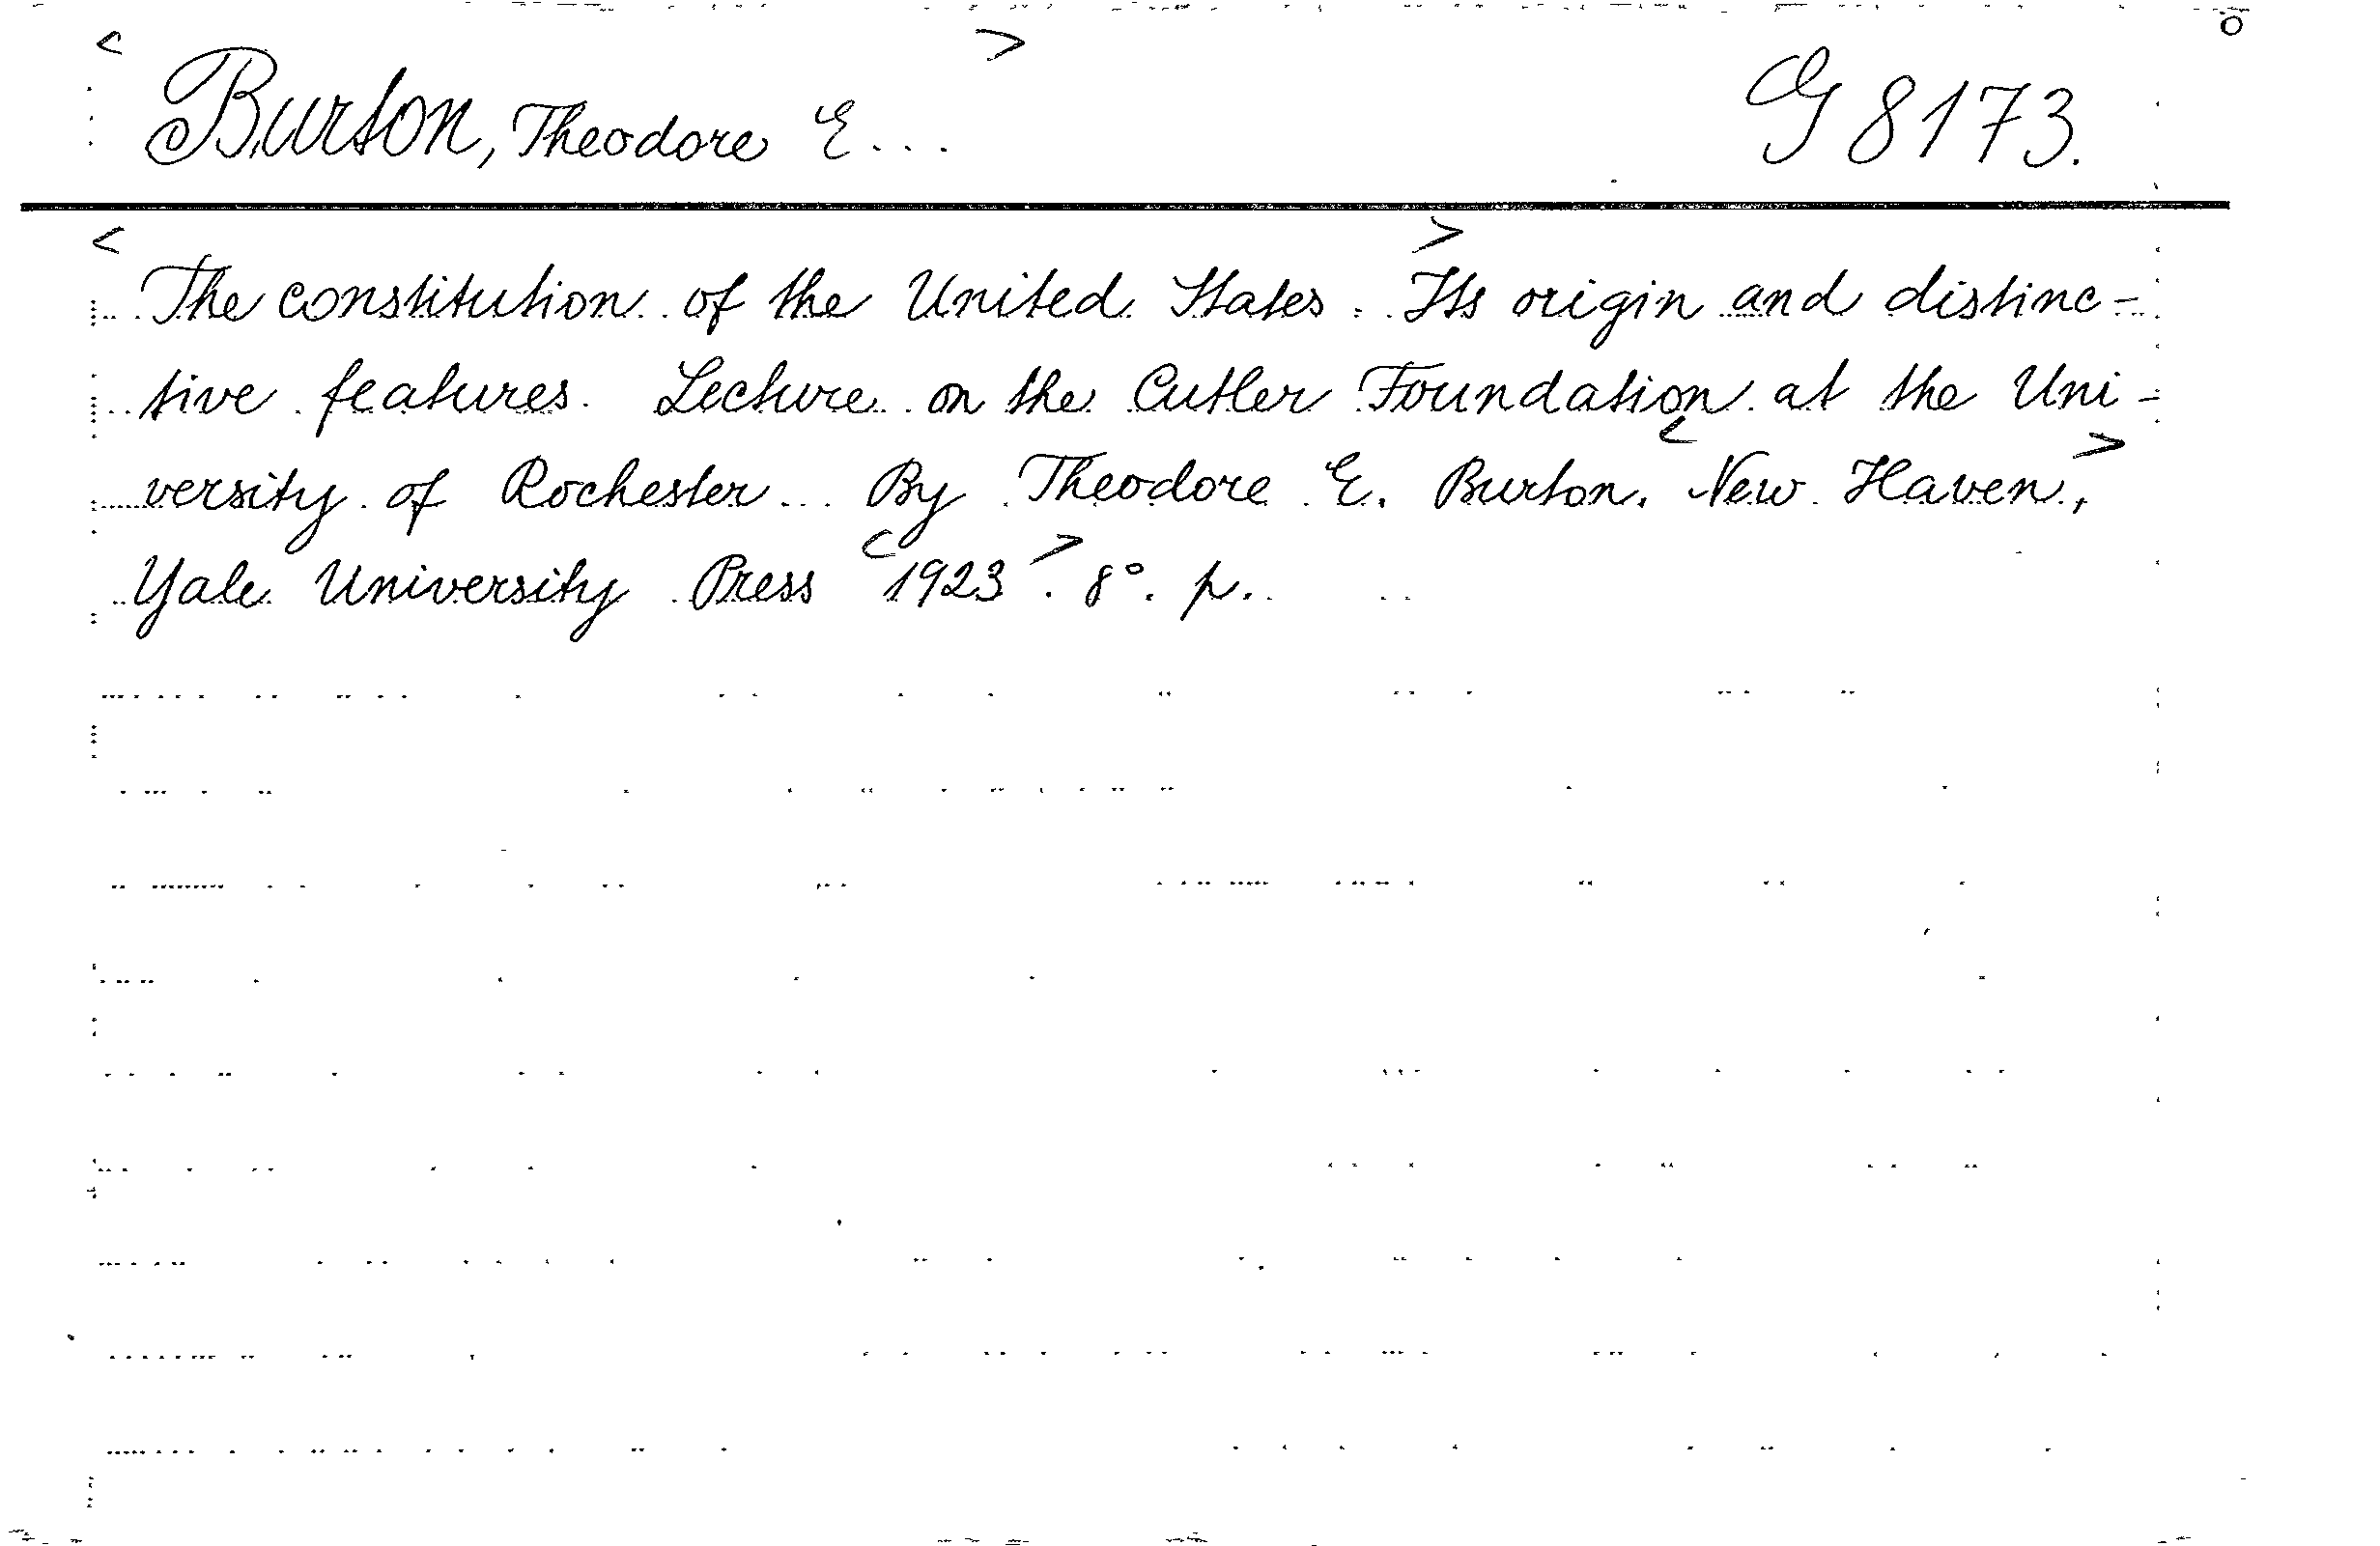 < Burton, Theodore E... > G 8173.
< The constitution of the United States. > Its origin and distinc-
tive features. Lecture on the Cutler Foundation at the Uni-
versity of Rochester... By Theodore E. Burton. < New Haven, >
Yale University Press < 1923 >. 8°. p.